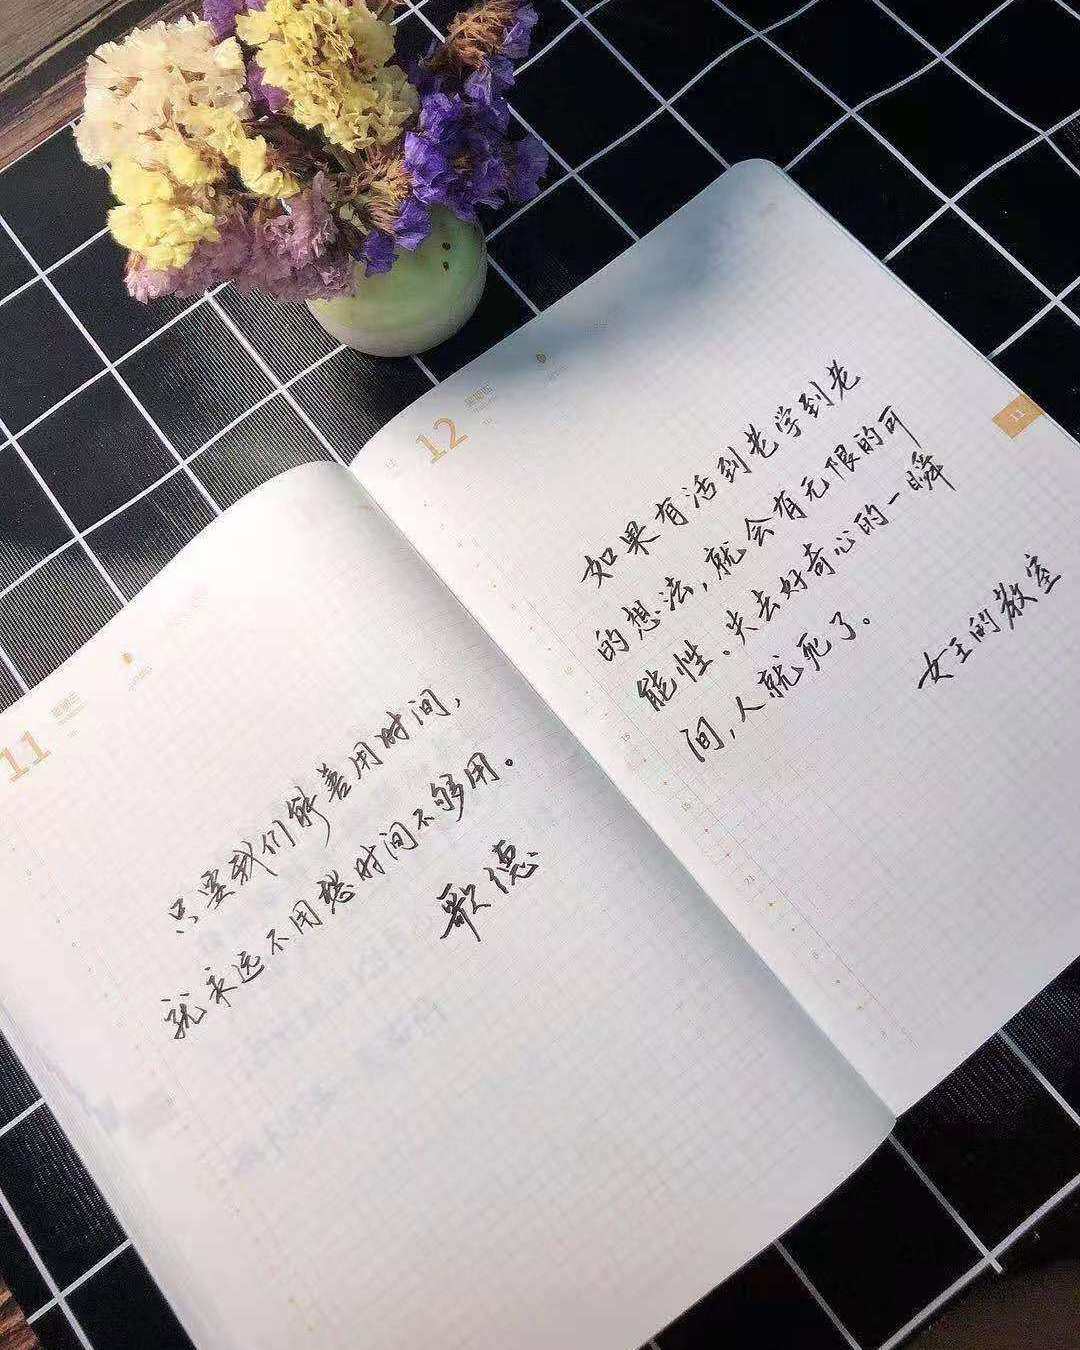 11
只要我们能善用时间，
就永远不用愁时间不够用。
歌德
12
11
如果有活到老学到老
的想法，就会有无限的可
能性、失去好奇心的一瞬
间，人就死了。
女王的教室